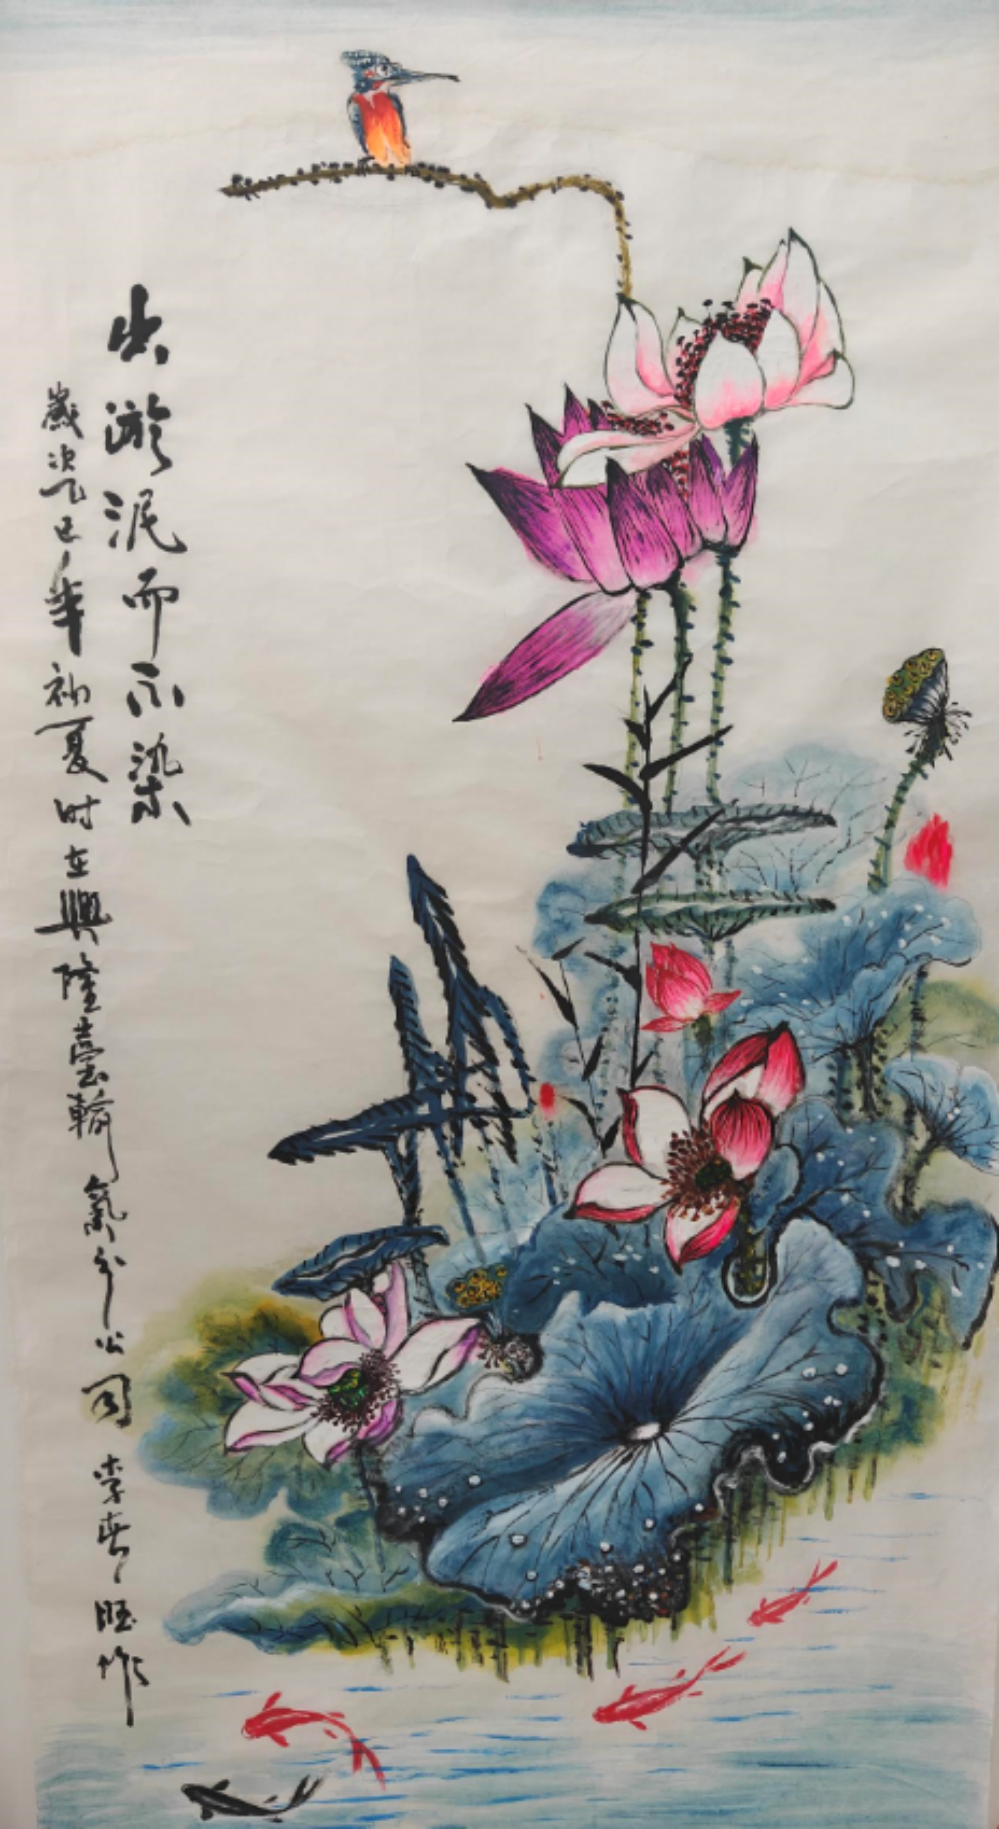 出淤泥而不染
岁次乙巳年初夏时在興隆臺輸氣分公司 李春旺作